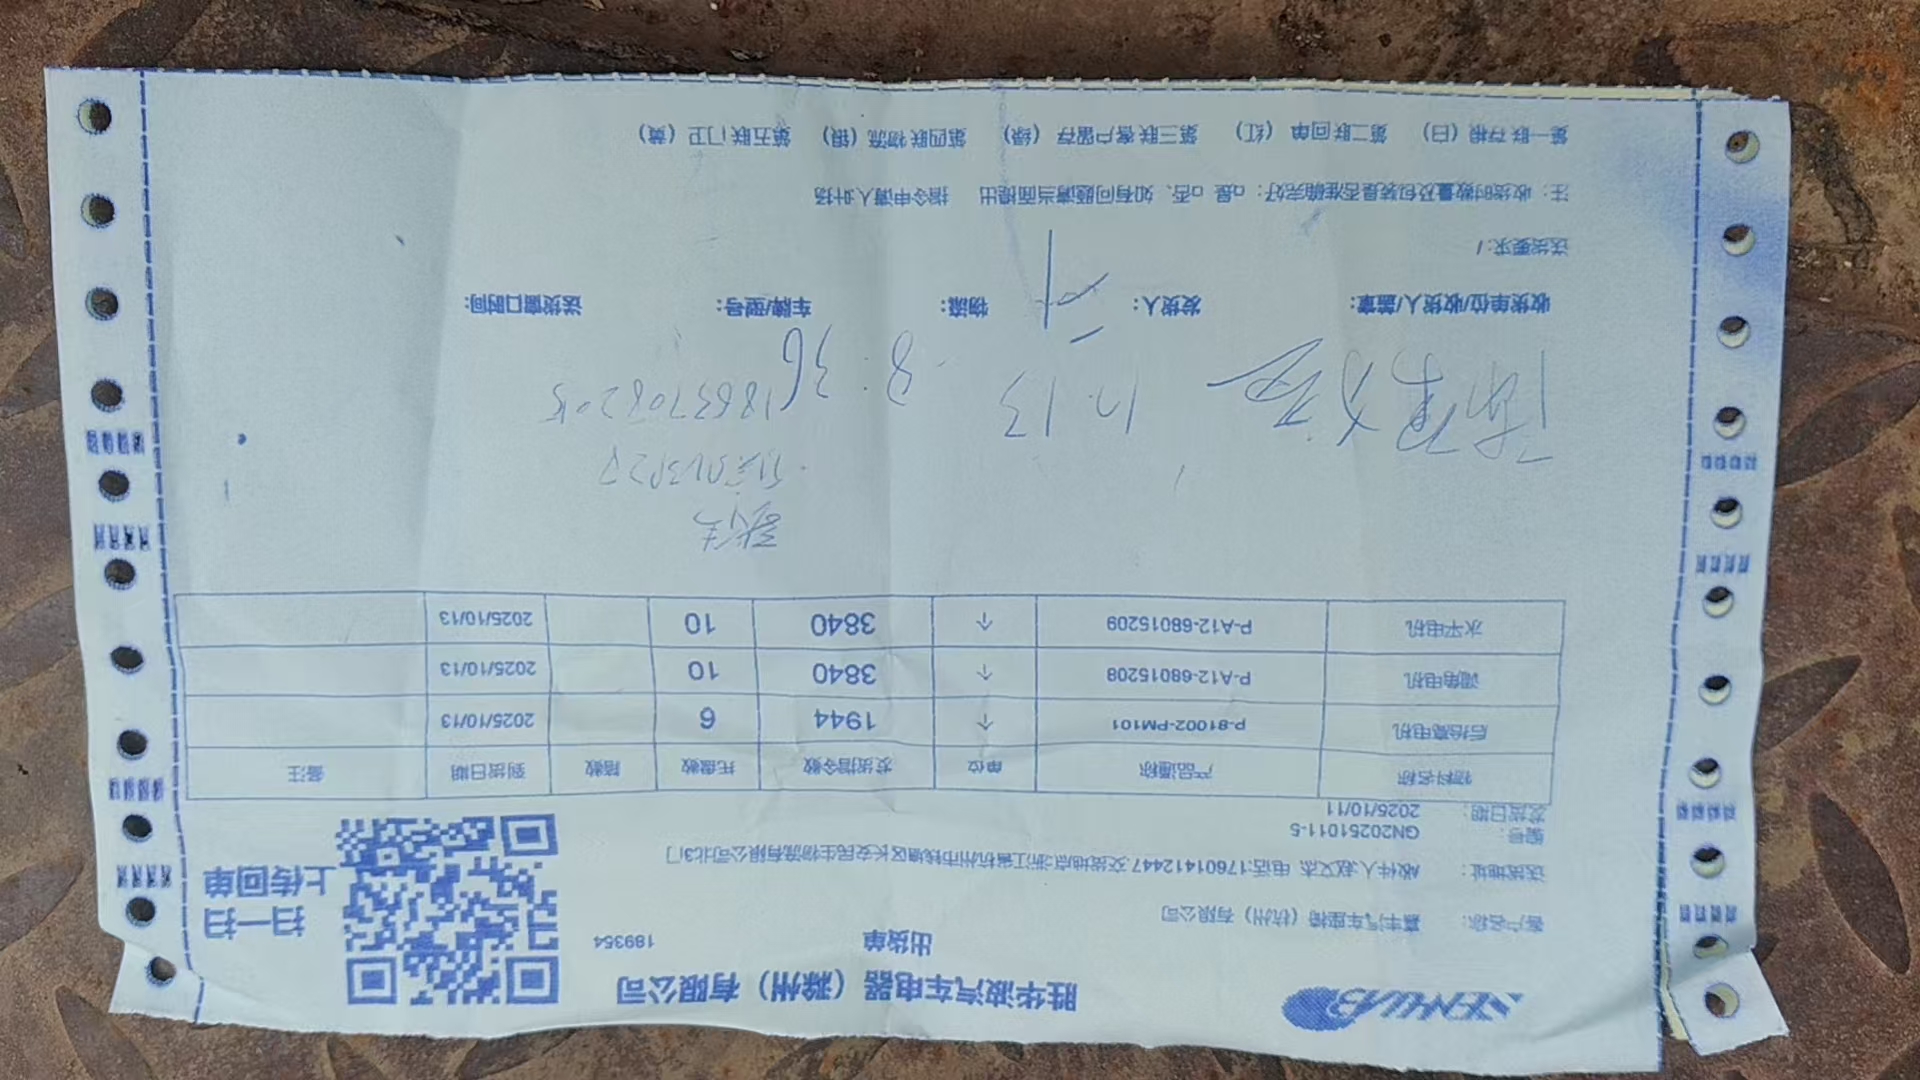 胜华波汽车电器（滁州）有限公司
出货单
189354
扫一扫
上传回单
客户名称： 富丰汽车座椅（杭州）有限公司
送货地址： 收件人:赵文杰 电话:17601412447,交货地点:浙江省杭州市钱塘区长安民生物流有限公司北3门
编号： GN20251011-5
发货日期： 2025/10/11
物料名称 产品通称 单位 发货指令数 托盘数 箱数 到货日期 备注
后抬高电机 P-81002-PM101 个 1944 6 2025/10/13
调角电机 P-A12-68015208 个 3840 10 2025/10/13
水平电机 P-A12-68015209 个 3840 10 2025/10/13
18637082015
8:36
收货单位/收货人/盖章： 发货人： 物流： 车牌/型号： 送货窗口时间：
送货要求：/
注：收货时数量及包装是否准确完好：□是 □否，如有问题请当面提出 指令申请人叶扬
第一联 存根（白） 第二联 回单（红） 第三联 客户留存（绿） 第四联 物流（银） 第五联 门卫（黄）